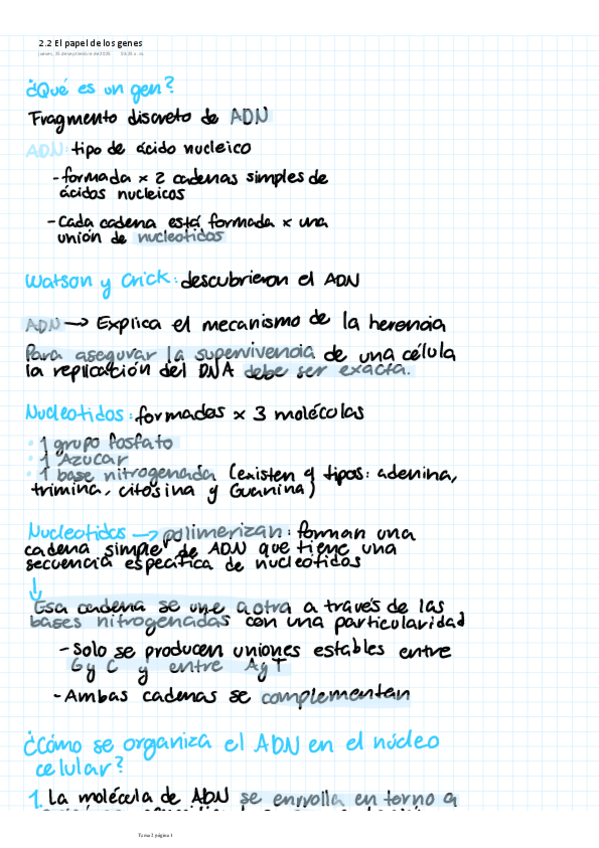 2.2 El papel de los genes
¿Qué es un gen?
Fragmento discreto de ADN
ADN: tipo de ácido nucleico
-formada x 2 cadenas simples de
ácidos nucleicos
-Cada cadena está formada x una
unión de nucleotidos
Watson y Crick: descubrieron el ADN
ADN → Explica el mecanismo de la herencia
Para asegurar la supervivencia de una célula
la replicación del DNA debe ser exacta.
Nucleotidos: formados x 3 moléculas
• 1 grupo fosfato
• 1 Azucar
• 1 base nitrogenada (existen 4 tipos: adenina,
trimina, citosina y Guanina)
Nucleotidos → polimerizan: forman una
cadena simple de ADN que tiene una
secuencia específica de nucleotidos
↓
Esa cadena se une a otra a través de las
bases nitrogenadas con una particularidad
- Solo se producen uniones estables entre
G y C y entre A y T
- Ambas cadenas se complementan
¿Cómo se organiza el ADN en el núcleo
celular?
1. La molécula de ADN se enrrolla en torno a
Tema 2 página 1